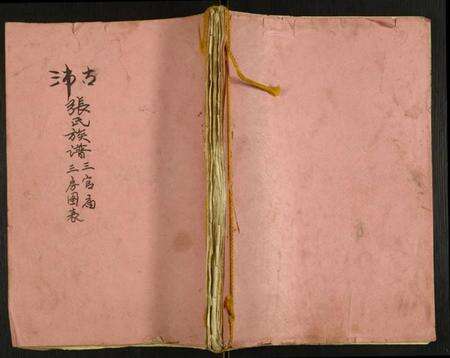 古沛
張氏族谱三官庙
三房图表